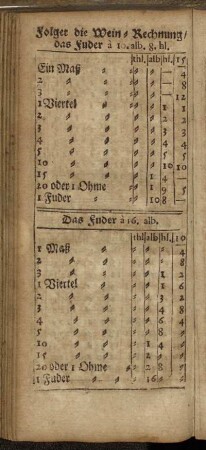 Folger die Wein-Rechnung/
das Fuder à 10. alb. 8. hl.
thl. alb hl. 15
Ein Maß 〃 〃 〃 — 4
2 〃 〃 〃 — 8
3 〃 〃 〃 — 12
1 Viertel 〃 〃 〃 1 1
2 〃 〃 〃 2 2
3 〃 〃 〃 3 3
4 〃 〃 〃 4 4
5 〃 〃 〃 5 5
10 〃 〃 〃 10 10
15 〃 〃 1 4 〃
20 oder 1 Ohme 〃 1 9 5
1 Fuder 〃 〃 10 8 〃
Das Fuder à 16. alb.
thl alb hl. 10
1 Maß 〃 〃 〃 〃 4
2 〃 〃 〃 〃 8
3 〃 〃 〃 1 2
1 Viertel 〃 〃 〃 1 6
2 〃 〃 〃 3 2
3 〃 〃 〃 4 8
4 〃 〃 〃 6 4
5 〃 〃 〃 8 〃
10 〃 〃 1 4 〃
15 〃 〃 2 〃 〃
20 oder 1 Ohme 〃 2 8 〃
1 Fuder 〃 〃 16 〃 〃